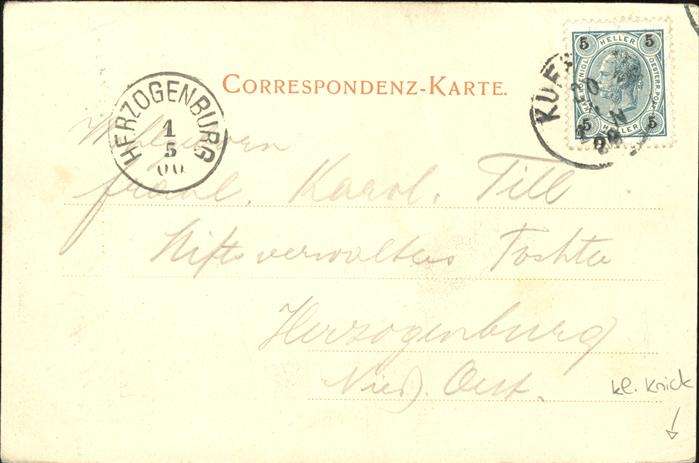 CORRESPONDENZ-KARTE.
HERZOGENBURG
1
5
00
5 HELLER 5
5 5
KUF
Wohlgeboren
Fräul. Karol. Till
Stiftsverwalters Tochter
Herzogenburg
Nied. Oest.
kl. Knick